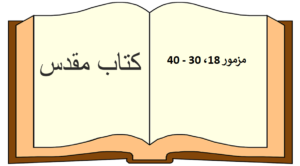 مزمور 18، 30 - 40
کتاب مقدس